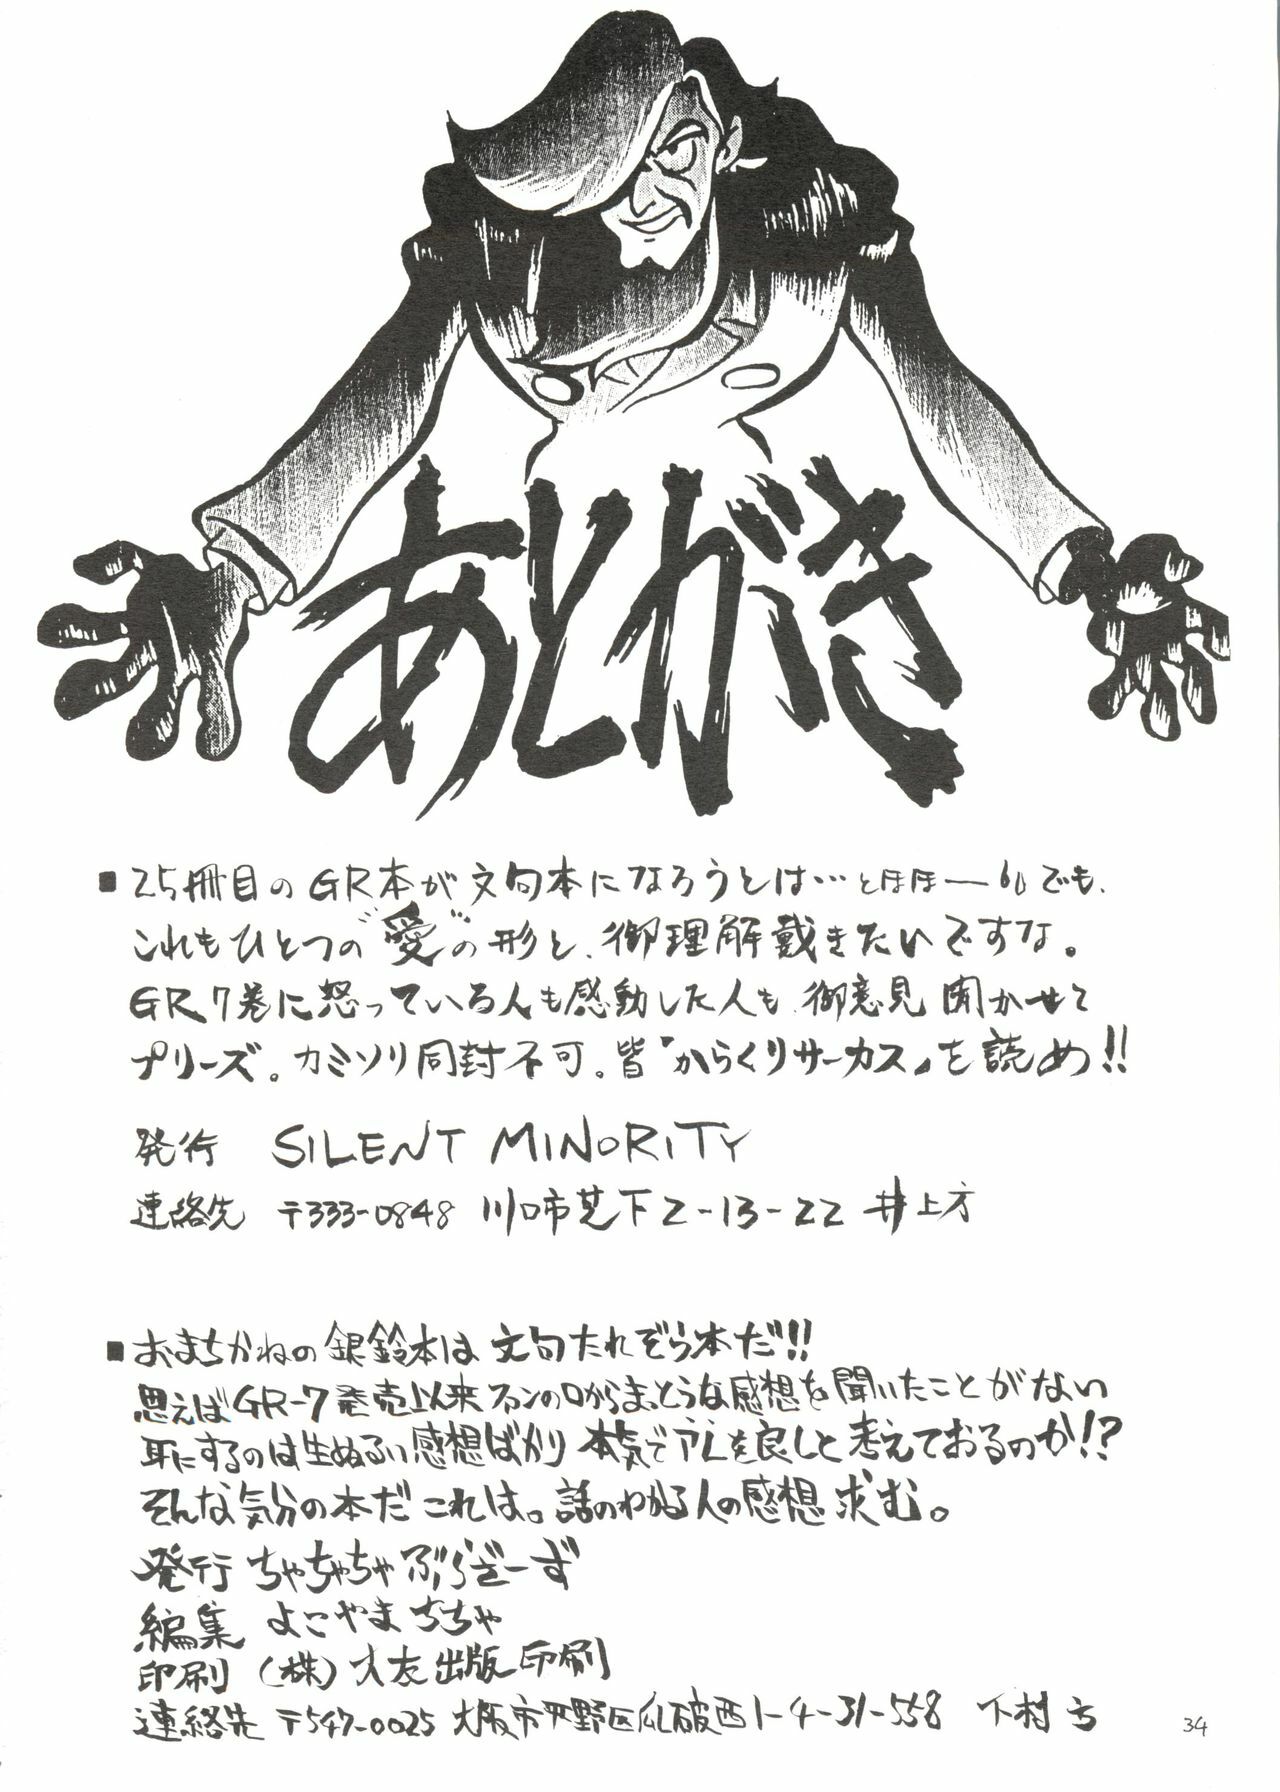 あとがき
■25冊目のGR本が文句本になろうとは…とほほー。でも、
これもひとつの“愛”の形と、御理解戴きたいですな。
GR7巻に怒っている人も感動した人も、御意見聞かせて
プリーズ。カミソリ同封不可。皆『からくりサーカス』を読め!!
発行 SILENT MINORITY
連絡先 〒333-0848 川口市芝下2-13-22 井上方
■おまちかねの銀鈴本は文句たれぞら本だ!!
思えばGR-7発売以来ファンの口からまっとうな感想を聞いたことがない
耳にするのは生ぬるい感想ばかり 本気でアレを良しと考えておるのか!?
そんな気分の本だ これは。話のわかる人の感想求む。
発行 ちゃちゃちゃぶらざーず
編集 よこやまちちゃ
印刷 (株)大友出版印刷
連絡先 〒547-0025 大阪市平野区瓜破西1-4-31-558 下村方
34